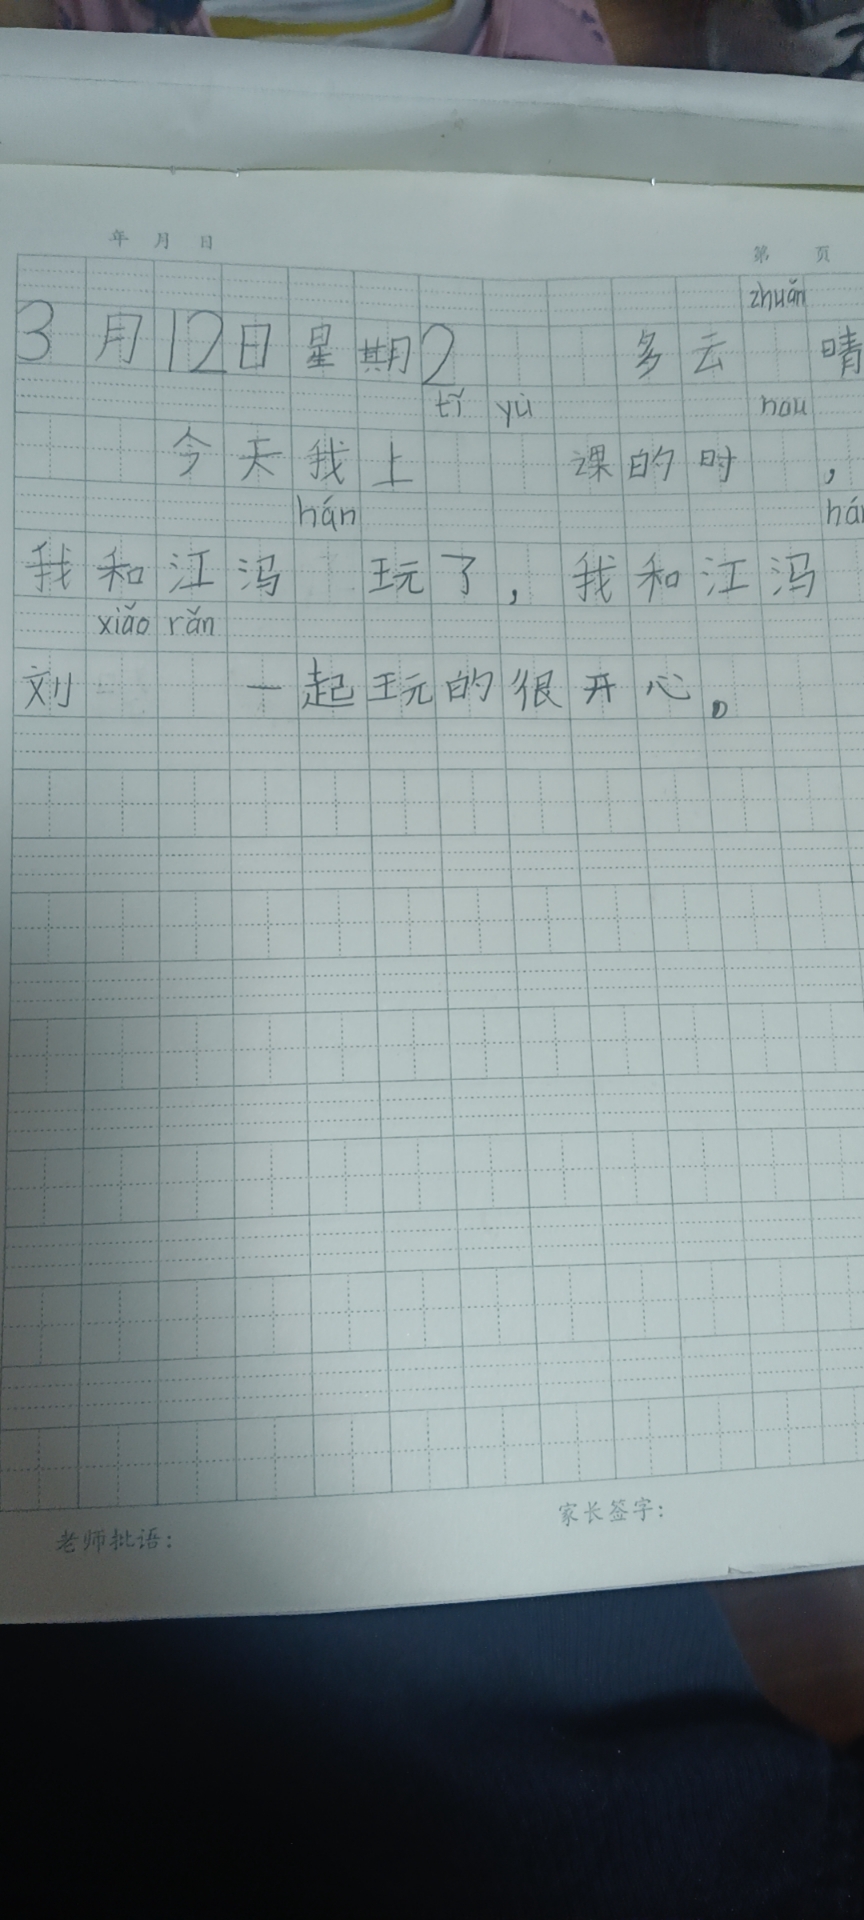 年 月 日 第 页
zhuǎn
3月12日星期2 多云 晴
tǐ yù hou
今天我上 课的时 ，
hán hán
我和江冯 玩了，我和江冯
xiǎo rǎn
刘 一起玩的很开心。
老师批语：
家长签字：